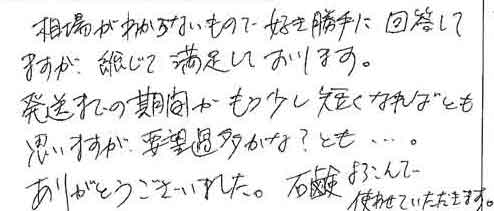 相場がわからないもので好き勝手に回答して
ますが、総じて満足しております。
発送までの期間がもう少し短くなればとも
思いますが、要望過多かな?とも…。
ありがとうございました。石鹸よろこんで
使わせていただきます。